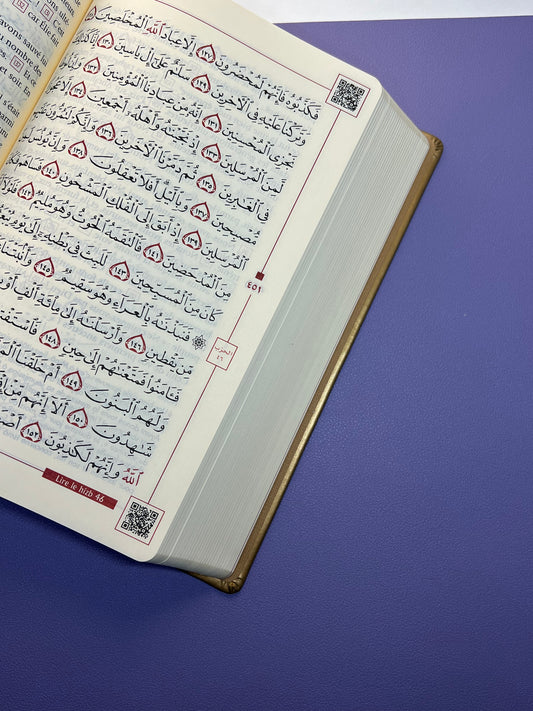 فَكَذَّبُوهُ فَإِنَّهُمْ لَمُحْضَرُونَ ١٢٧ إِلَّا عِبَادَ ٱللَّهِ ٱلْمُخْلَصِينَ
وَتَرَكْنَا عَلَيْهِ فِى ٱلْءَاخِرِينَ ١٢٩ سَلَٰمٌ عَلَىٰٓ إِلْ يَاسِينَ ١٣٠ إِنَّا
نَجْزِى ٱلْمُحْسِنِينَ ١٣١ إِنَّهُۥ مِنْ عِبَادِنَا ٱلْمُؤْمِنِينَ ١٣٢
لَّمِنَ ٱلْمُرْسَلِينَ ١٣٣ إِذْ نَجَّيْنَٰهُ وَأَهْلَهُۥٓ أَجْمَعِينَ ١٣٤ إِلَّا
فِى ٱلْغَٰبِرِينَ ١٣٥ ثُمَّ دَمَّرْنَا ٱلْءَاخَرِينَ ١٣٦ وَإِنَّكُمْ لَتَمُرُّونَ
مُّصْبِحِينَ ١٣٧ وَبِٱلَّيْلِ أَفَلَا تَعْقِلُونَ ١٣٨ وَإِنَّ يُونُسَ
ٱلْمُرْسَلِينَ ١٣٩ إِذْ أَبَقَ إِلَى ٱلْفُلْكِ ٱلْمَشْحُونِ ١٤٠
مِنَ ٱلْمُدْحَضِينَ ١٤١ فَٱلْتَقَمَهُ ٱلْحُوتُ وَهُوَ مُلِيمٌ ١٤٢ فَلَوْلَآ
كَانَ مِنَ ٱلْمُسَبِّحِينَ ١٤٣ لَلَبِثَ فِى بَطْنِهِۦٓ إِلَىٰ يَوْمِ
۞ فَنَبَذْنَٰهُ بِٱلْعَرَآءِ وَهُوَ سَقِيمٌ ١٤٥ وَأَنۢبَتْنَا
مِّن يَقْطِينٍ ١٤٦ وَأَرْسَلْنَٰهُ إِلَىٰ مِا۟ئَةِ أَلْفٍ أَوْ
فَـَٔامَنُوا۟ فَمَتَّعْنَٰهُمْ إِلَىٰ حِينٍ ١٤٨
وَلَهُمُ ٱلْبَنُونَ ١٤٩ أَمْ خَلَقْنَا
شَٰهِدُونَ ١٥٠ أَلَآ إِنَّهُم مِّنْ
ٱللَّهُ وَإِنَّهُمْ لَكَٰذِبُونَ ١٥٢
٤٥١
الحزب
٤٦
Lire le hizb 46